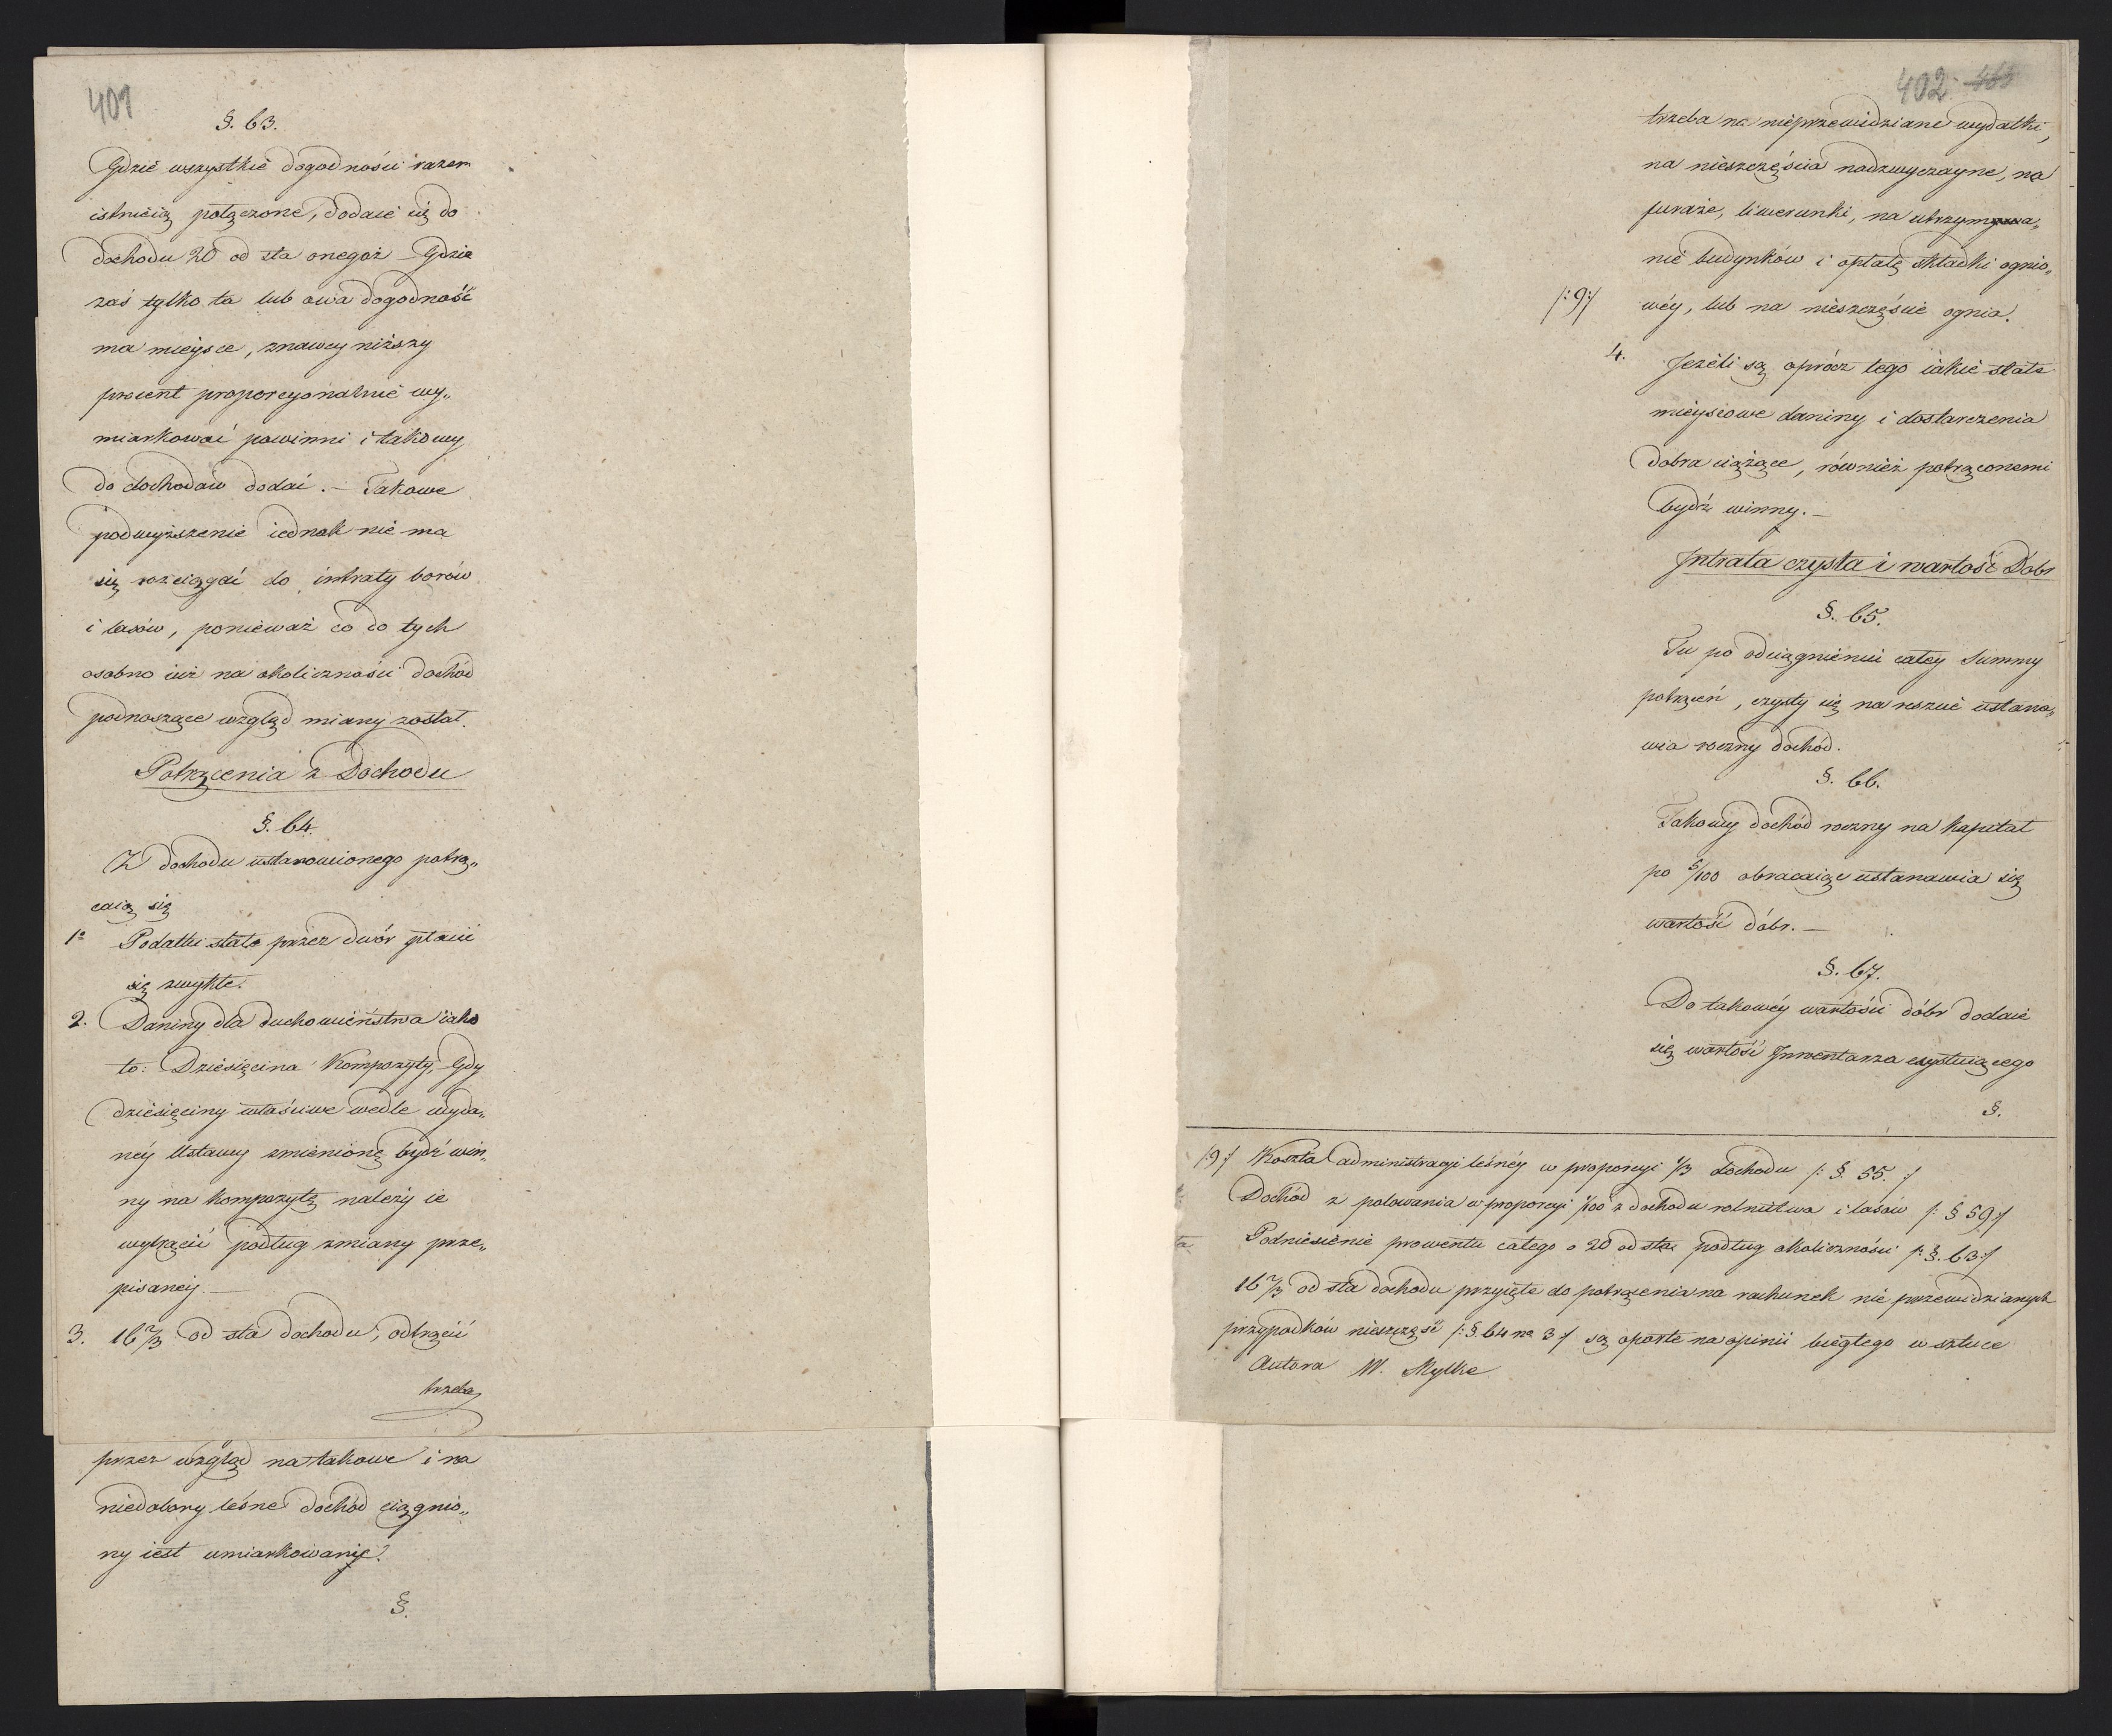 401
§. 63.
Gdzie wszystkie dogodności razem
istnieią połączone, dodaie się do
dochodu 20 od sta onegoż Gdzie
zaś tylko ta lub owa dogodność
ma mieysce, znawcy niższy
procent proporcyonalnie wy„
miarkować powinni i takowy
do dochodów dodać. – Takowe
podwyższenie iednak nie ma
się rozciągać do intraty borów
i lasów, ponieważ co do tych
osobno iuż na okoliczności dochód
podnoszące wzgląd miany został.
Potrącenia z Dochodu
§. 64.
Z dochodu ustanowionego potrą„
caią się
1º Podatki stałe przez dwór płacić
się zwykłe.
2. Daniny dla duchowieństwa iako
to: Dziesięcina Kompozyty, Gdy
dziesięciny właściwe wedle wyda„
néy Ustawy zmienione bydź win„
ny na kompozytę należy ie
wytrącić podług zmiany prze„
pisanéy. —
3. 16 2/3 od sta dochodu, odtrącić
trzeba
przez wzgląd na takowe i na
niedobory leśne dochód ciągnio„
ny iest umiarkowany.
§.
402
trzeba na nieprzewidziane wydatki,
na nieszczęścia nadzwyczayne, na
furaże, liwerunki, na utrzymywa„
nie budynków i opłatę składki ognio„
/:9:/ wéy, lub na nieszczęście ognia.
4. Jeżeli są oprócz tego iakie stałe
mieyscowe daniny i dostarczenia
dobra ciążące, również potrąconemi
bydź winny. —
Intrata czysta i wartość Dóbr
§. 65.
Tu po odciągnieniu całéy Summy
potrąceń, czysty się na reszcie ustano„
wia roczny dochód.
§. 66.
Takowy dochód roczny na kapitał
po 5/100 obracaiąc ustanawia się
wartość dóbr. —
§. 67.
Do takowéy wartości dóbr dodaie
się wartość Inwentarza exystuiącego
§.
/:9:/ Koszta administracyi leśnéy w proporcyi 1/3 dochodu /: §. 55. :/
Dochód z polowania w proporcyi 1/100 z dochodu rolnictwa i lasów /: § 59:/
Podniesienie prowentu całego o 20 od sta podług okoliczności /: §. 63:/
16 2/3 od sta dochodu przyięte do potrącenia na rachunek nie przewidzianych
przypadków nieszczęść /: §. 64 no 3:/ są oparte na opinii biegłego w sztuce
Autora W. Mylke